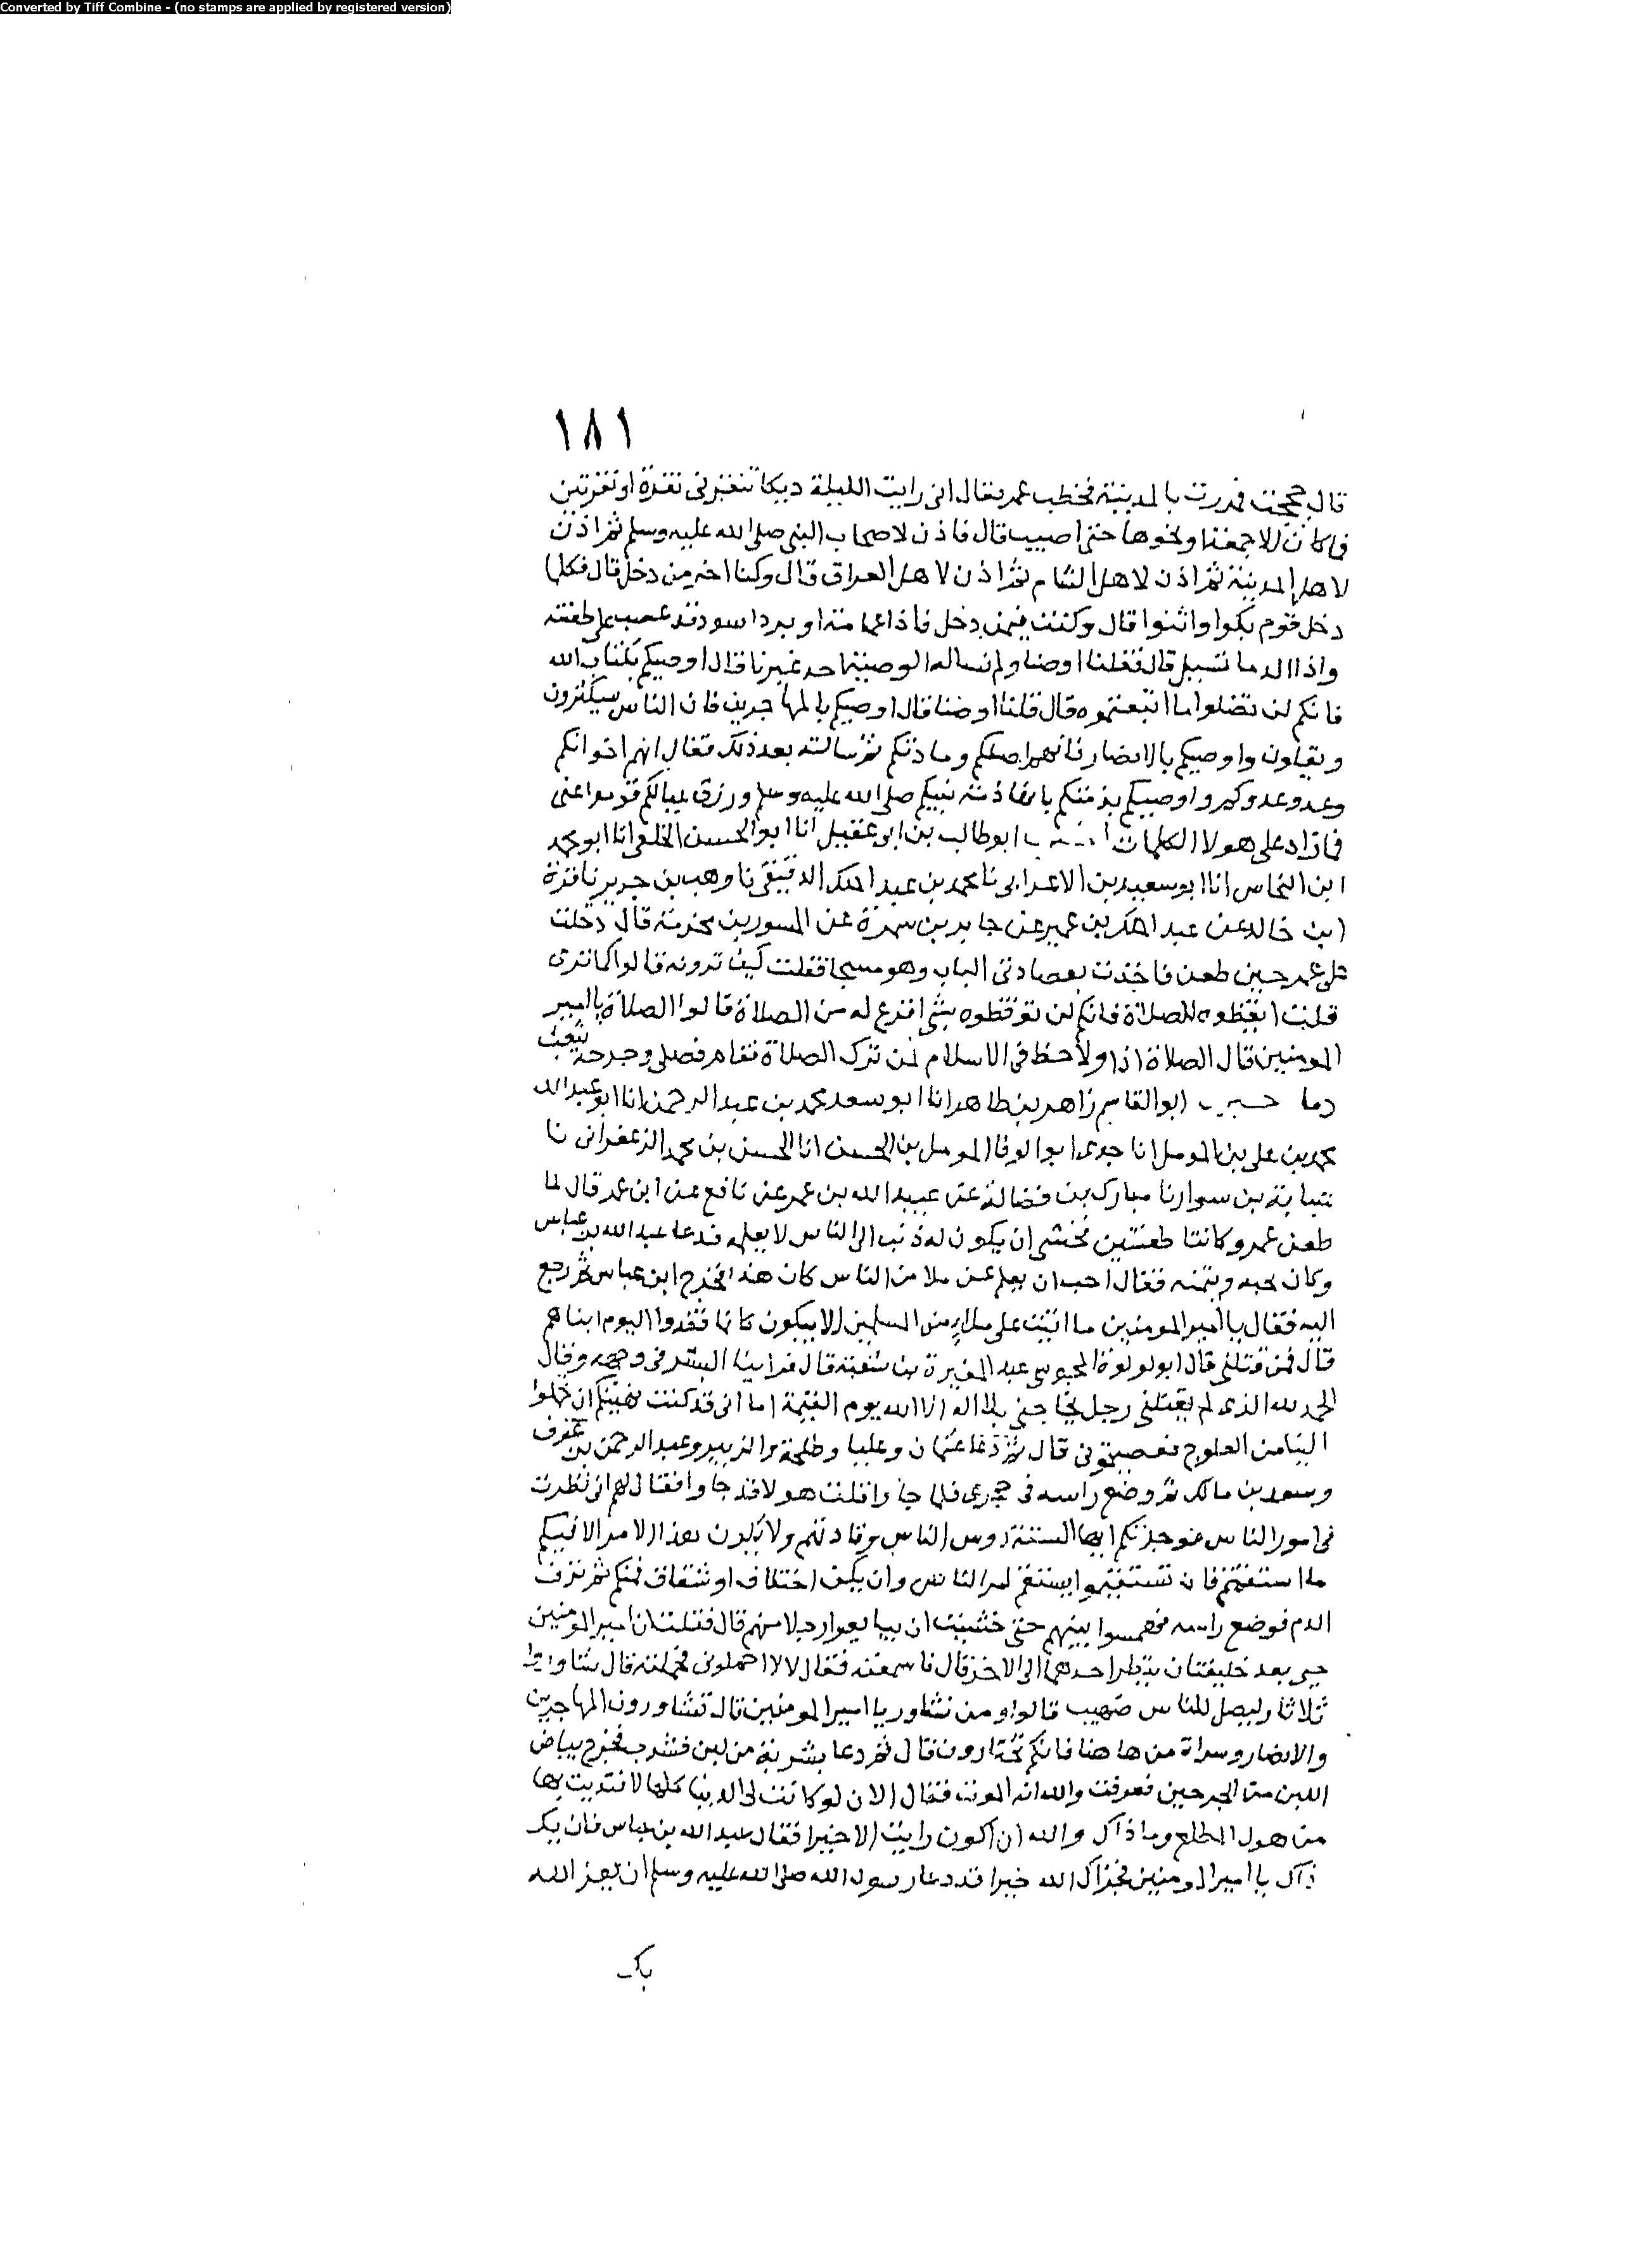 Converted by Tiff Combine - (no stamps are applied by registered version)
١٨١
قال حججت فمررت بالمدينة فخطب عمر فقال انى رايت الليلة ديكا نقرنى نقرة او نقرتين
فما كان الا جمعة او نحوها حتى اصيب قال فاذن لاصحاب النبى صلى الله عليه وسلم ثم اذن
لاهل المدينة ثم اذن لاهل الشام ثم اذن لاهل العراق قال وكنا اخر من دخل قال فكلما
دخل قوم بكوا واثنوا قال وكنت فيمن دخل فاذا عمامة او برد اسود قد عصب على طعنته
واذا الدما تسيل قال فقلنا اوصنا ولم يساله الوصية احد غيرنا قال اوصيكم بكتاب الله
فانكم لن تضلوا ما اتبعتموه قال قلنا اوصنا قال اوصيكم بالمهاجرين فان الناس سيكثرون
ويقلون واوصيكم بالانصار فانهم اصلكم ومادتكم ثم سالته بعد ذلك فقال انهم اخوانكم
وعدو عدوكم واوصيكم بذمتكم فانها ذمة نبيكم صلى الله عليه وسلم ورزق عيالكم قوموا عنى
فما زاد على هولا الكلمات ابو طالب بن ابى عقيل انا ابو الحسن الخلعى انا ابو محمد
ابن النحاس انا ابو سعيد بن الاعرابى نا محمد بن عبد الملك الدقيقى نا وهب بن جرير نا قرة
ابن خالد عن عبد الملك بن عمير عن جابر بن سمرة عن المسور بن مخرمة قال دخلت
على عمر حين طعن فاخذت بعضادتى الباب وهو مسجا فقلت كيف ترونه قالوا كما ترى
قلت ايقظوه للصلاة فانكم لن توقظوه بشى افزع له من الصلاة قالوا الصلاة يا امير
المومنين قال الصلاة اذا ولا حظ فى الاسلام لمن ترك الصلاة فقام فصلى وجرحه يثعب
دما ابو القاسم زاهر بن طاهر انا ابو سعد محمد بن عبد الرحمن انا ابو عبد الله
محمد بن على بن المومل انا جدى ابو الوفا المومل بن الحسن انا الحسن بن محمد الزعفرانى نا
شبابة بن سوار نا مبارك بن فضالة عن عبيد الله بن عمر عن نافع عن ابن عمر قال لما
طعن عمر وكانتا طعنتين فخشى ان يكون له ذنب الى الناس لا يعلمه فدعا عبد الله بن عباس
وكان يحبه ويتمنه فقال احب ان يعلم عن ملا من الناس كان هذا فخرج ابن عباس ثم رجع
اليه فقال يا امير المومنين ما اتيت على ملا من المسلمين الا يبكون كانما فقدوا اليوم ابناهم
قال فمن قتلنى قال ابو لولوة المجوسى عبد المغيرة بن شعبة قال فراينا البشر فى وجهه وقال
الحمد لله الذى لم يقتلنى رجل يحاجنى بلا اله الا الله يوم القيمة اما انى قد كنت نهيتكم ان تحملوا
الينا من العلوج فعصيتمونى قال ثم دعا عثمان وعليا وطلحة والزبير وعبد الرحمن بن عوف
وسعد بن مالك ثم وضع راسه فى حجرى فلما جاوا قلت هولا قد جاوا فقال لهم انى نظرت
فى امور الناس فوجدتكم ايها الستة روس الناس وقادتهم ولا يكون هذا الامر الا فيكم
ما استقمتم فان تستقيموا يستقم امر الناس وان يكن اختلاف او شقاق فمنكم ثم نزف
الدم فوضع راسه فهمسوا بينهم حتى خشيت ان يبايعوا رجلا منهم قال فقلت ان امير المومنين
حى بعد خليفتان ينظر احدهما الى الاخر قال فاسمعته فقال لا لا احملونى فحملته قال تشاوروا
ثلاثا وليصل للناس صهيب قالوا ومن نشاور يا امير المومنين قال تشاورون المهاجرين
والانصار وسراة من ها هنا فانكم تختارون قال ثم دعا بشربة من لبن فشرب فخرج بياض
اللبن من الجرحين فعرفت والله انه الموت فقال الان لو كانت لى الدنيا كلها لافتديت بها
من هول المطلع وما ذاك والله ان اكون رايت الا خيرا فقال عبد الله بن عباس فان يك
ذاك يا امير المومنين فجزاك الله خيرا قد دعا رسول الله صلى الله عليه وسلم ان يعز الله
بك